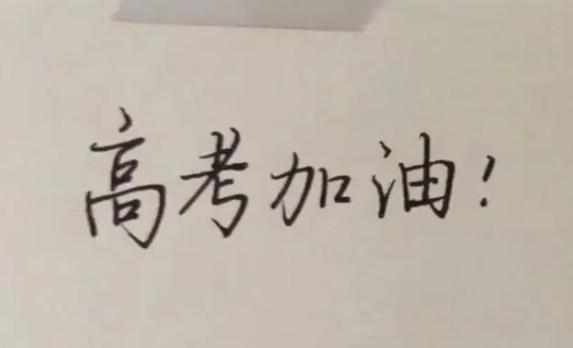 高考加油！